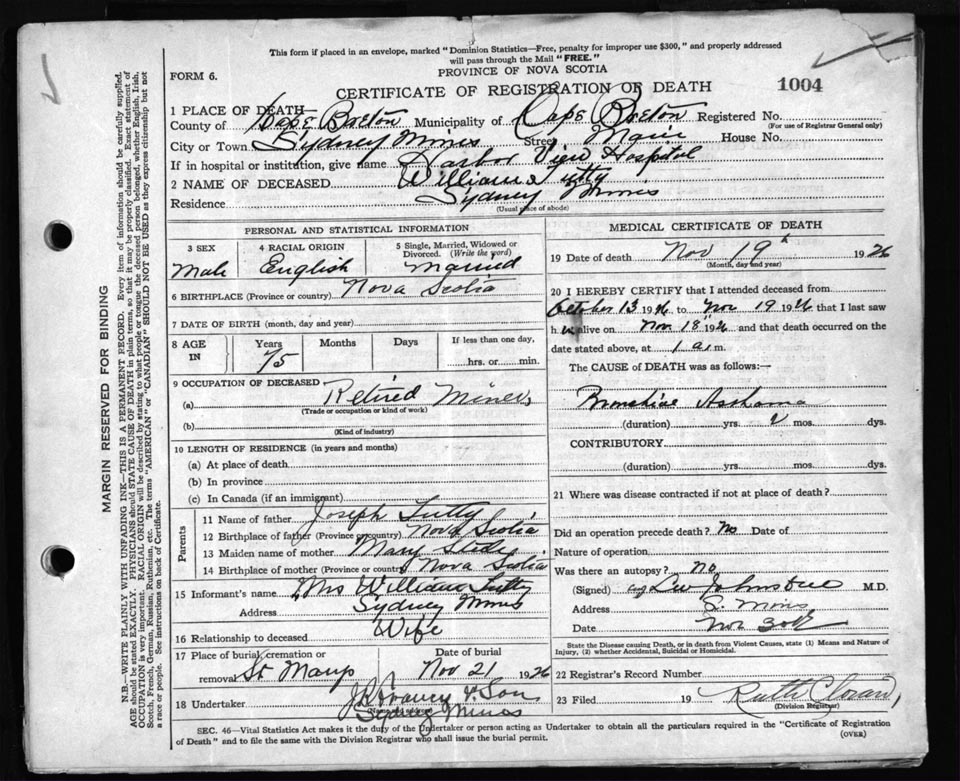 This form if placed in an envelope, marked "Dominion Statistics—Free, penalty for improper use $300," and properly addressed
will pass through the Mail "FREE."
FORM 6.
PROVINCE OF NOVA SCOTIA
CERTIFICATE OF REGISTRATION OF DEATH
1004
1 PLACE OF DEATH—
County of Cape Breton Municipality of Cape Breton Registered No.
(For use of Registrar General only)
City or Town Sydney Mines Street Main House No.
If in hospital or institution, give name Harbor View Hospital
2 NAME OF DECEASED William Tutty
Residence Sydney Mines
(Usual place of abode)
PERSONAL AND STATISTICAL INFORMATION
3 SEX 4 RACIAL ORIGIN 5 Single, Married, Widowed or Divorced. (Write the word)
Male English Married
6 BIRTHPLACE (Province or country) Nova Scotia
7 DATE OF BIRTH (month, day and year)
8 AGE IN Years Months Days If less than one day,
75 hrs. or min.
9 OCCUPATION OF DECEASED
(a) Retired Miner
(Trade or occupation or kind of work)
(b)
(Kind of industry)
10 LENGTH OF RESIDENCE (in years and months)
(a) At place of death
(b) In province
(c) In Canada (if an immigrant)
Parents
11 Name of father Joseph Tutty
12 Birthplace of father (Province or country) Nova Scotia
13 Maiden name of mother Mary
14 Birthplace of mother (Province or country) Nova Scotia
15 Informant's name Mrs William Tutty
Address Sydney Mines
16 Relationship to deceased Wife
17 Place of burial, cremation or removal St Marys
Date of burial Nov 21 1926
18 Undertaker & Son
Sydney Mines
MEDICAL CERTIFICATE OF DEATH
19 Date of death Nov 19 1926
(Month, day and year)
20 I HEREBY CERTIFY that I attended deceased from
October 13 1926 to Nov 19 1926 that I last saw
h alive on Nov 18 1926 and that death occurred on
date stated above, at 1 a.m.
The CAUSE of DEATH was as follows:—
Asthma
(duration) yrs. 2 mos. dys.
CONTRIBUTORY
(duration) yrs. mos. dys.
21 Where was disease contracted if not at place of death?
Did an operation precede death? No Date of
Nature of operation
Was there an autopsy? no
(Signed) Johnstone M.D.
Address S. Mines
Date Nov
State the Disease causing Death, or in death from Violent Causes, state (1) Means and Nature of
Injury, (2) whether Accidental, Suicidal or Homicidal.
22 Registrar's Record Number
23 Filed 19 Ruth
(Division Registrar)
SEC. 46—Vital Statistics Act makes it the duty of the Undertaker or person acting as Undertaker to obtain all the particulars required in the "Certificate of Registration
of Death" and to file the same with the Division Registrar who shall issue the burial permit.
(OVER)
MARGIN RESERVED FOR BINDING
N.B.—WRITE PLAINLY WITH UNFADING INK—THIS IS A PERMANENT RECORD. Every item of information should be carefully supplied.
AGE should be stated EXACTLY. PHYSICIANS should STATE CAUSE OF DEATH in plain terms, so that it may be properly classified. Exact statement of
OCCUPATION is very important. RACIAL ORIGIN will be described by stating to what people or tongue the deceased person belonged, whether English, Irish,
Scotch, French, German, Russian, Ruthenian, etc. The terms "AMERICAN" or "CANADIAN" SHOULD NOT BE USED as they express citizenship but not
a race or people. See instructions on back of Certificate.